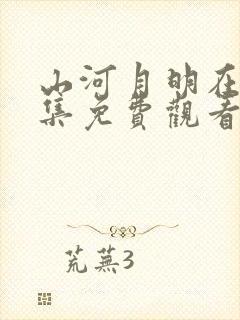 山河月明在
集免費觀看
荒蕪3